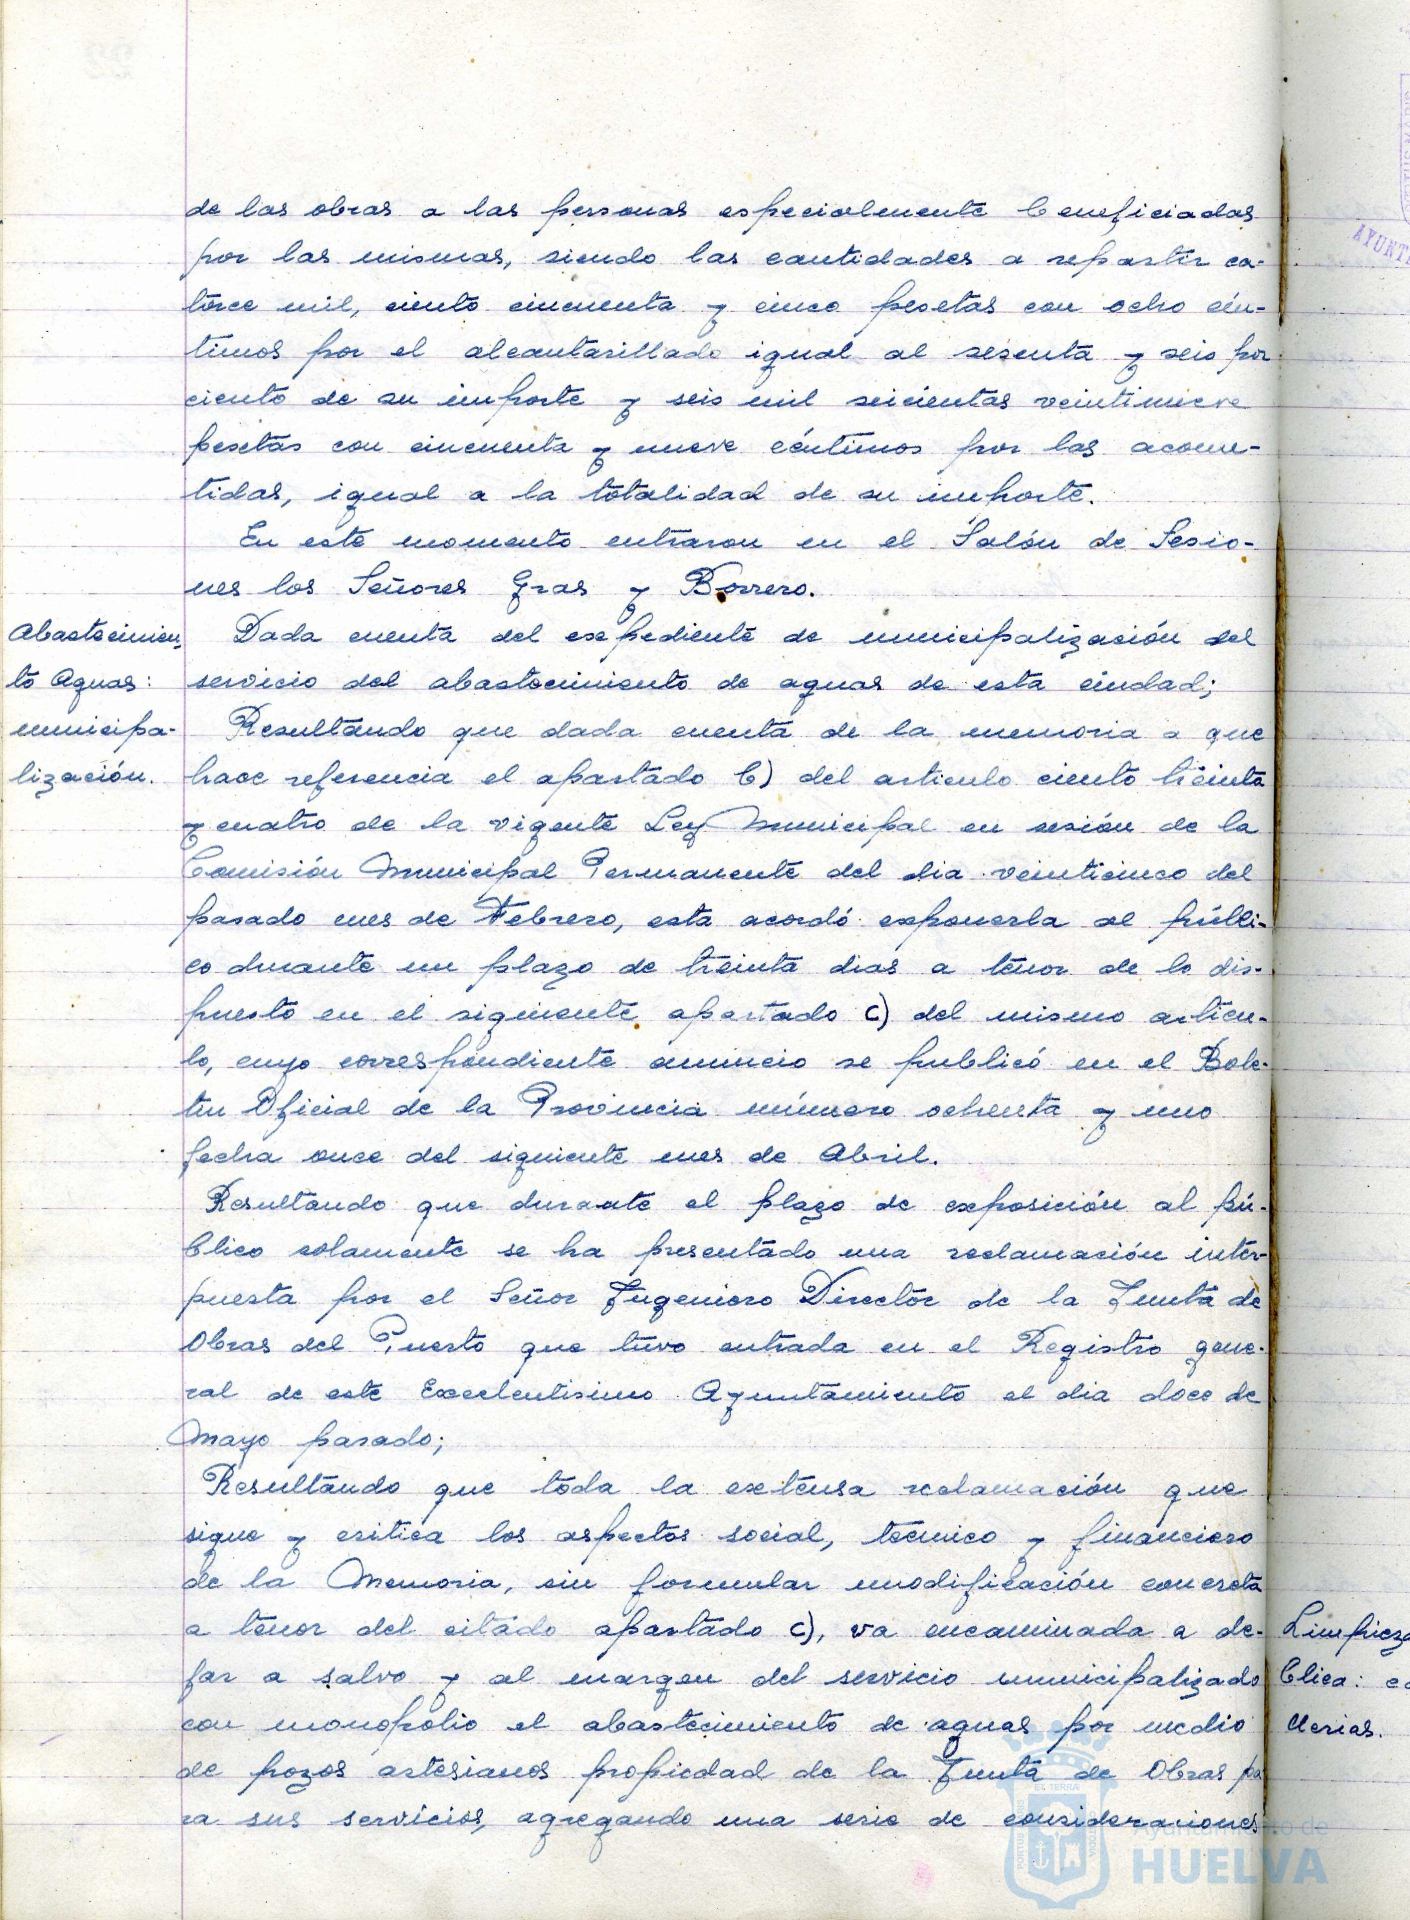 de las obras a las personas especialmente beneficiadas
por las mismas, siendo las cantidades a repartir ca-
torce mil, ciento cincuenta y cinco pesetas con ocho cén-
timos por el alcantarillado igual al sesenta y seis por
ciento de su importe y seis mil seicientas veintinueve
pesetas con cincuenta y nueve céntimos por las acome-
tidas, igual a la totalidad de su importe.
En este momento entraron en el Salón de Sesio-
nes los Señores Gras y Borrero.
Abastecimien-
to Aguas:
municipa-
lización.
Dada cuenta del expediente de municipalización del
servicio del abastecimiento de aguas de esta ciudad;
Resultando que dada cuenta de la memoria a que
hace referencia el apartado b) del articulo ciento treinta
y cuatro de la vigente Ley Municipal en sesión de la
Comisión Municipal Permanente del dia veinticinco del
pasado mes de Febrero, esta acordó exponerla al públi-
co durante un plazo de treinta dias a tenor de lo dis-
puesto en el siguiente apartado c) del mismo articu-
lo, cuyo correspondiente anuncio se publicó en el Bole-
tin Oficial de la Provincia número ochenta y uno
fecha once del siguiente mes de Abril.
Resultando que durante el plazo de exposición al pú-
blico solamente se ha presentado una reclamación inter-
puesta por el Señor Ingeniero Director de la Junta de
Obras del Puerto que tuvo entrada en el Registro gene-
ral de este Excelentisimo Ayuntamiento el dia doce de
Mayo pasado;
Resultando que toda la extensa reclamación que
sigue y critica los aspectos social, tecnico y financiero
de la Memoria, sin formular modificación concreta
a tenor del citado apartado c), va encaminada a de-
jar a salvo y al margen del servicio municipalizado
con monopolio el abastecimiento de aguas por medio
de pozos artesianos propiedad de la Junta de Obras pa
ra sus servicios, agregando una serie de consideraciones
Limpieza
blica:
Ayuntamiento de
HUELVA